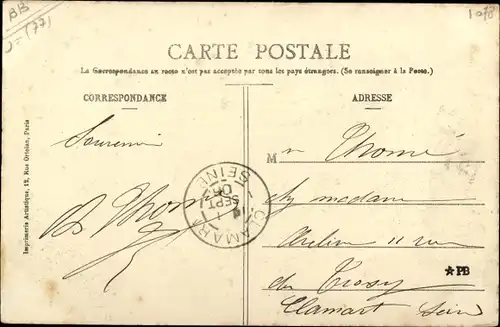 BB
J=(77)
1078
CARTE POSTALE
La Correspondance au recto n'est pas acceptée par tous les pays étrangers. (Se renseigner à la Poste.)
CORRESPONDANCE
ADRESSE
Souvenir
Thomé
Mr Thomé
chez madame
11 rue
du Trosy
Clamart Seine
CLAMART
SEPT
06
SEINE
★PB
Imprimerie Artistique, 12, Rue Ortolan, Paris